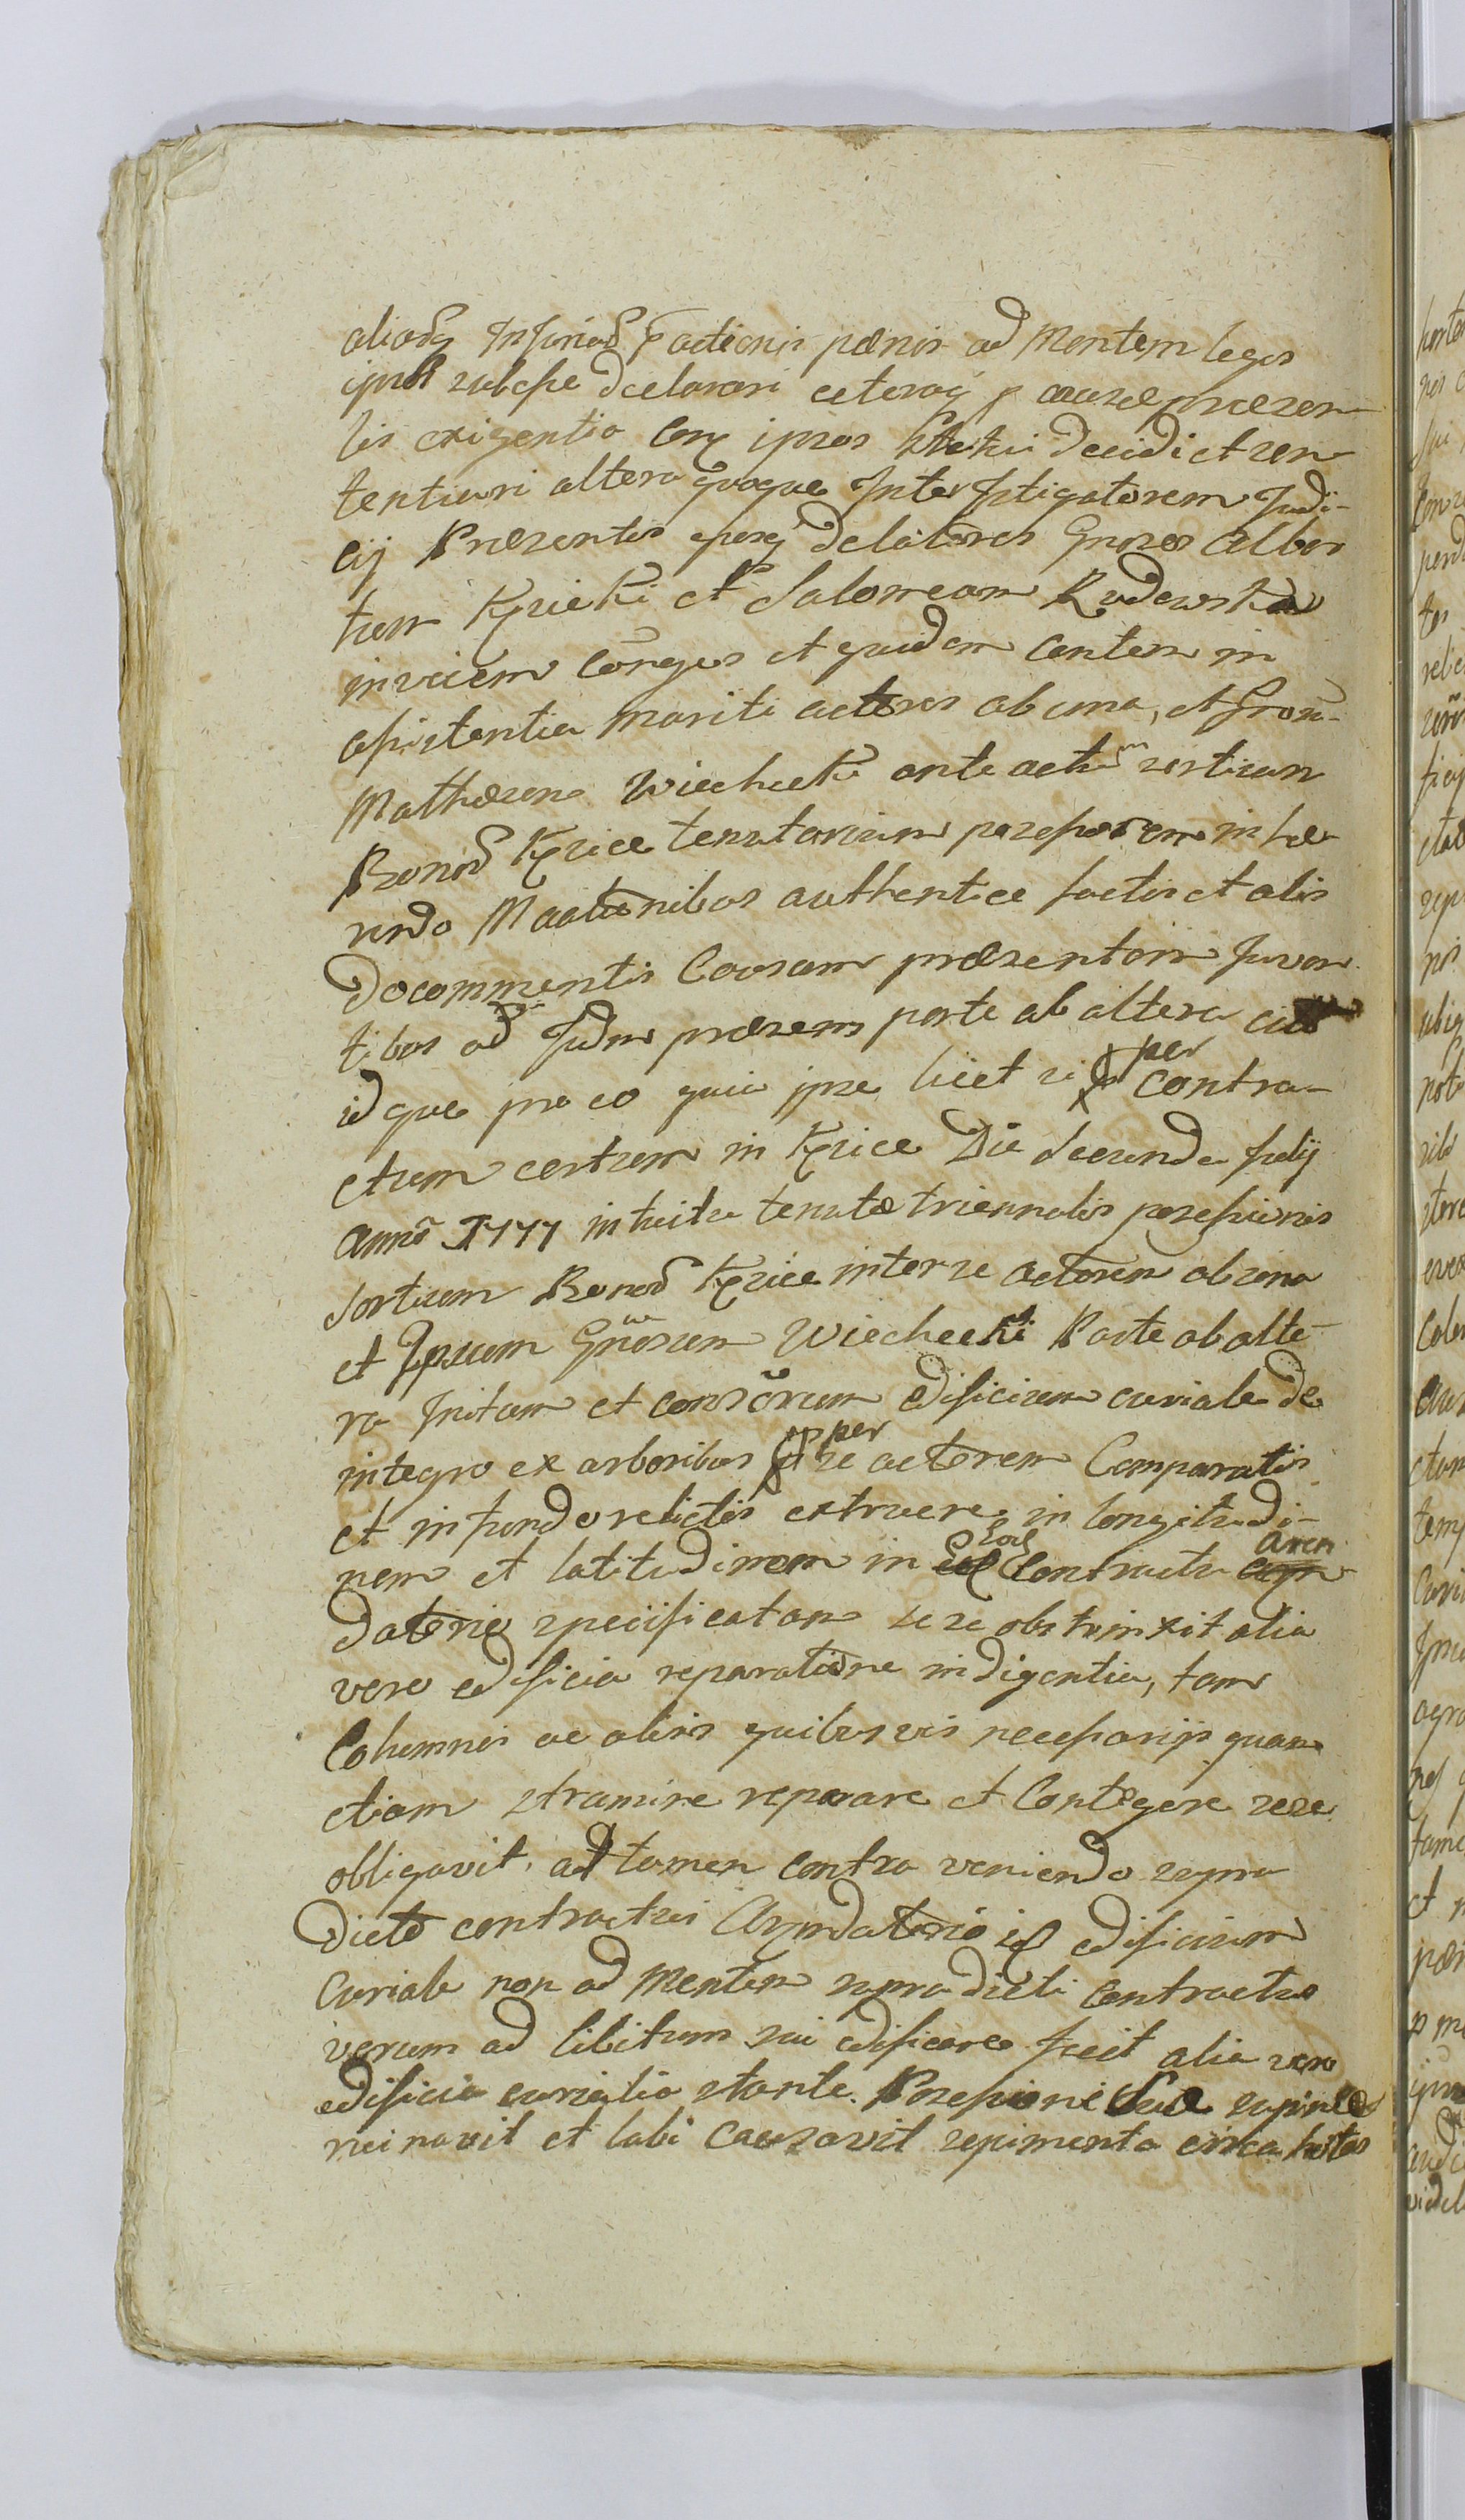 pænis ad Mentem legis
subesse declarari ceteraq p causæ præsen
tis exigentia ipsos decidi et sen
tentiari altera quoque Inter Instigatorem Judi-
cij Præsentis ejusq delatores Gnosos Alber
tum Kziczki et Salomeam Rudowska
invicem Conges et quidem Contem in
assistentia Mariti actores ab una, et Grosu-
Mathæum Wiechecki ante actum sortium
Bonor Kzice tenutarium possessorem in hæ
rendo Mactionibus authentice factis et aliis
documentis Causam præsentem Juvan
tibus ad Judm præsens parte ab altera
idque pro eo quia ipse licet per contra-
ctum certum in Kzice Die Secunda Julij
Anno 1777 intuitu tenutæ triennalis possessionis
Sortium Bonor Kzice inter se actorem ab una
et Ipsum Gnosum Wiechecki Parte ab alte-
ra Initum et edificium curiale de
integro ex arboribus per se actorem Comparatis
et in fundo relictis extruere in longitudi-
nem et latitudinem in Eod Contractu aren
datorio specificatam sese obstrinxit alia
vero edificia reparatione indigentia, tam
Columnis ac aliis quibusvis necessarijs quam
etiam stramine reparare et Contegere sese
obligavit. ad tamen contra veniendo supra
dicto contractui Arendatorio id edificium
Curiale non ad Mentem supra dicti Contractus
verum ad libitum sui edificare fecit alia vero
edificia curialia stante Possessione Sua
ruinavit et labi Causavit sepimenta circa hortos